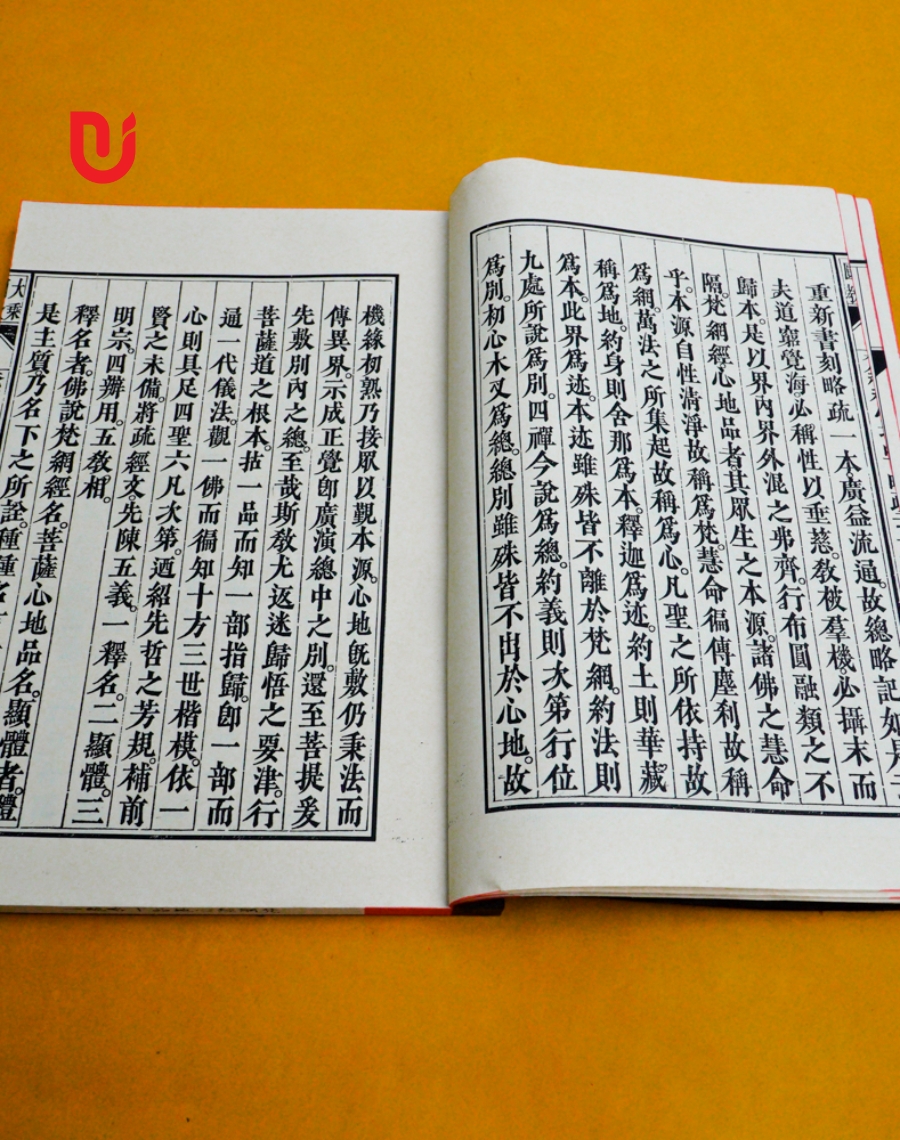 重新書刻略疏一本廣益流通。故總略記如是
夫道窮覺海。必稱性以垂慈。教被羣機。必攝末而
歸本。是以界內界外混之弗齊。行布圓融類之不
隔。梵網經心地品者。其眾生之本源。諸佛之慧命
乎。本源自性清淨。故稱爲梵。慧命徧傳塵刹。故稱
爲網。萬法之所集起。故稱爲心。凡聖之所依持。故
稱爲地。約身則舍那爲本。釋迦爲迹。約土則華藏
爲本。此界爲迹。本迹雖殊皆不離於梵網。約法則
九處所說爲別。四禪今說爲總。約義則次第行位
爲別。初心木叉爲總。總別雖殊皆不出於心地。故
機緣初熟乃接眾以覲本源。心地旣敷仍秉法而
傳異界。示成正覺卽廣演總中之別。還至菩提爰
先敷別內之總。至哉斯教尤返迷歸悟之要津。行
菩薩道之根本。拈一品而知一部指歸。卽一部而
通一代儀法。觀一佛而徧知十方三世楷模。依一
心則具足四聖六凡次第。迺紹先哲之芳規。補前
賢之未備。將疏經文。先陳五義。一釋名。二顯體。三
明宗。四辨用。五教相。
釋名者。佛說梵網經名。菩薩心地品名。顯體者。體
是主質乃名下之所詮。種種名
大乘